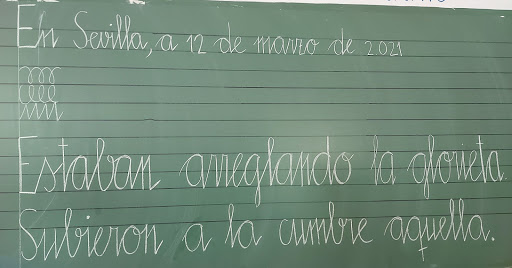 En Sevilla, a 12 de marzo de 2021
Estaban arreglando la glorieta.
Subieron a la cumbre aquella.